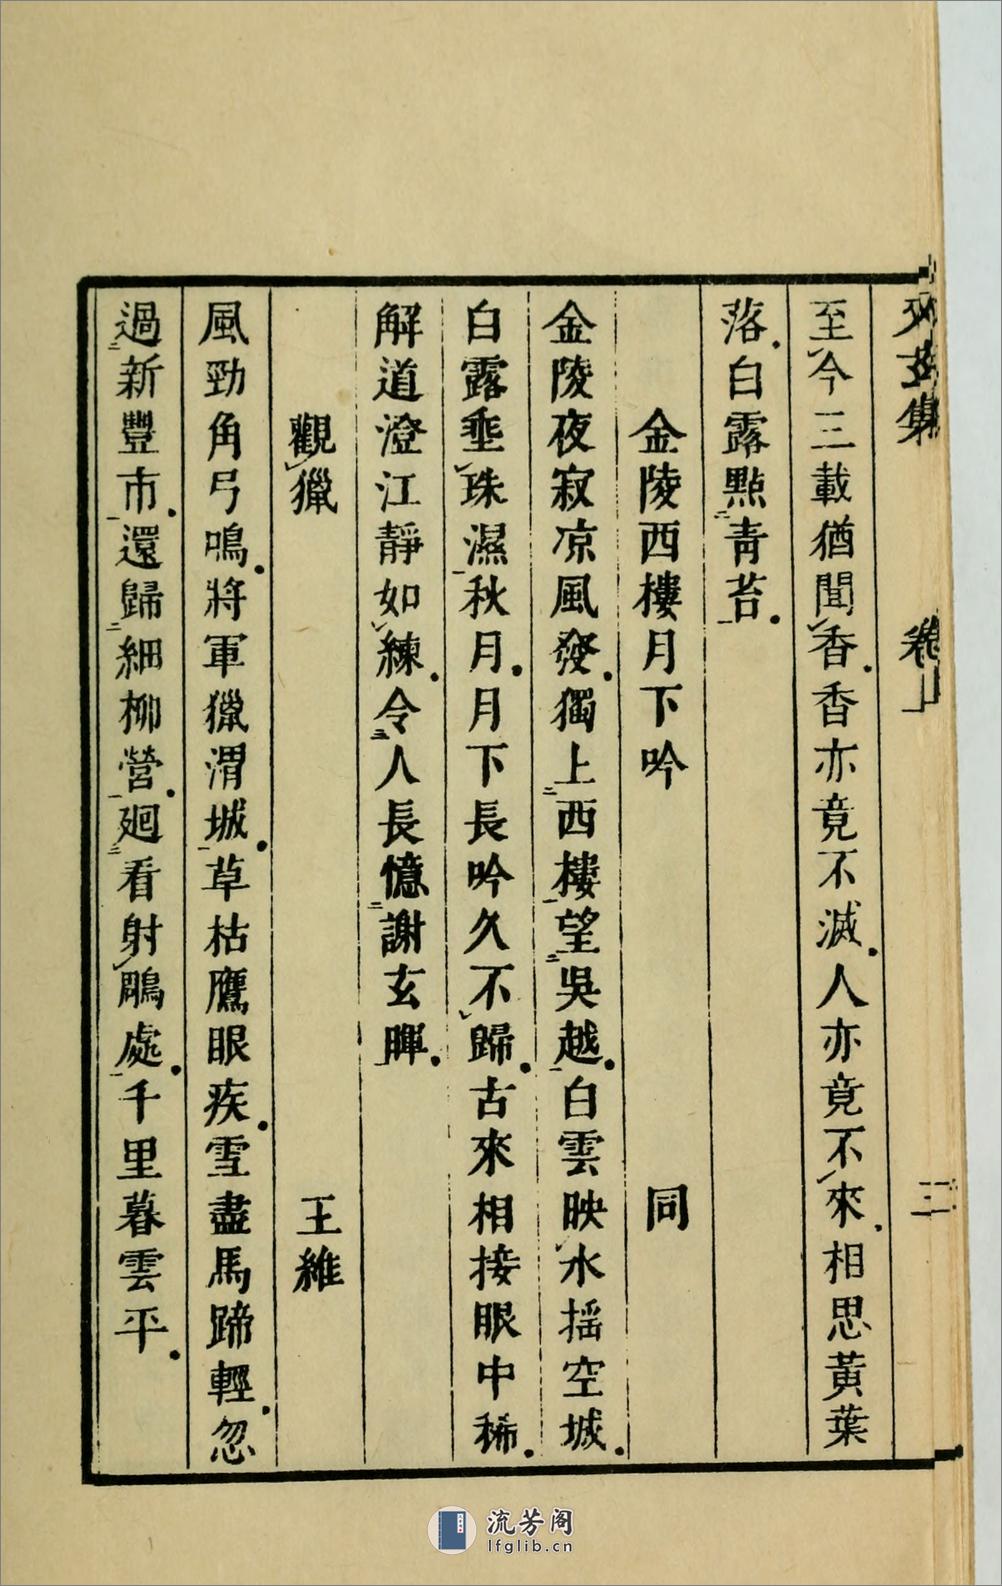 又玄集　卷上　二
至今三載猶聞香香亦竟不滅人亦竟不來相思黃葉
落白露點青苔
金陵西樓月下吟　同
金陵夜寂凉風發獨上西樓望吳越白雲映水揺空城
白露垂珠濕秋月月下長吟久不歸古來相接眼中稀
解道澄江靜如練令人長憶謝玄暉
觀獵　王維
風勁角弓鳴將軍獵渭城草枯鷹眼疾雪盡馬蹄輕忽
過新豐市還歸細柳營廻看射鵰處千里暮雲平
流芳阁
lfglib.cn